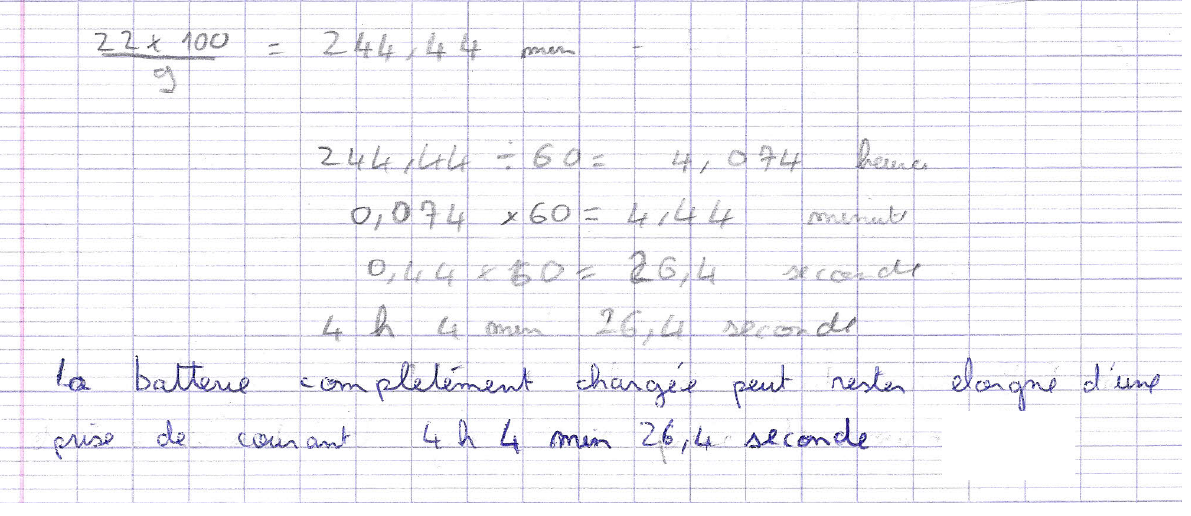 22 x 100 / 9 = 244,44 min
244,44 ÷ 60 = 4,074 heure
0,074 x 60 = 4,44 minut
0,44 x 60 = 26,4 seconde
4 h 4 min 26,4 seconde
la batterie complétément chargée peut rester elorgné d'une
prise de courant 4 h 4 min 26,4 seconde